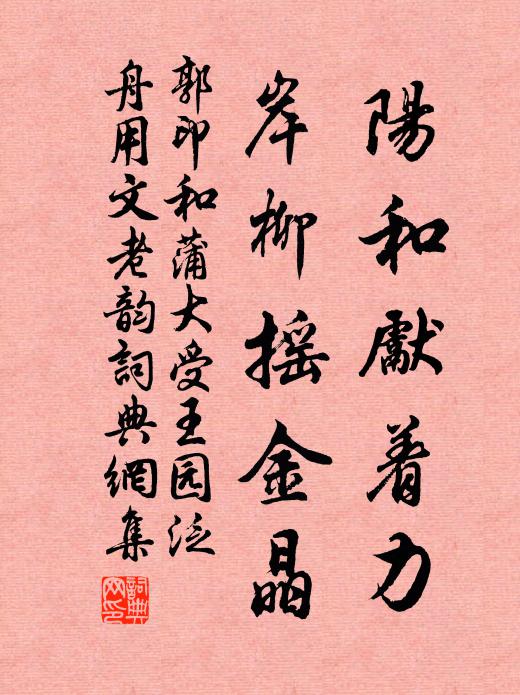 陽和獻着力
岸柳摇金晶
郭印和蒲大受王园泛
舟用文老韵詞典網集
詞典